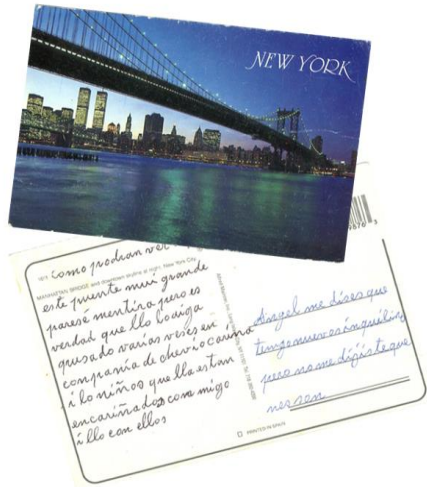 NEW YORK
Como podran ver
MANHATTAN BRIDGE and downtown skyline at night, New York City
este puente mui grande
paresé mentira pero es
verdad que llo lo aiga
qusado varias veses en
conpania de chevio cauna
i lo niños que lla estan
encariñados con migo
i llo con ellos
Angel me dises que
tengo nuevos inquilin
pero no me dijiste que
nes son
PRINTED IN SPAIN